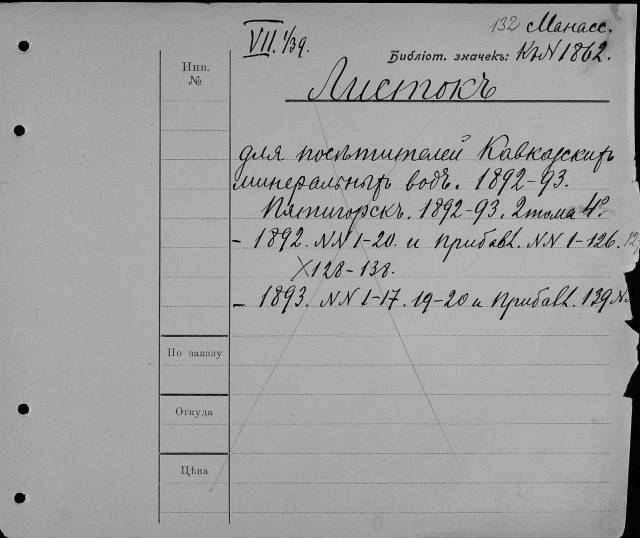 132 Манасс.
VII. 1/39.
Библіот. значекъ: К.N 1862.
Инв.
№
Листокъ
для посѣтителей Кавказскихъ
минеральныхъ водъ. 1892-93.
Пятигорскъ. 1892-93. 2 тома 4º.
- 1892. NN 1-20. и Прибавл. NN 1-126.
128-138.
- 1893. NN 1-17. 19-20 и Прибавл. 139
По заказу
Откуда
Цѣна